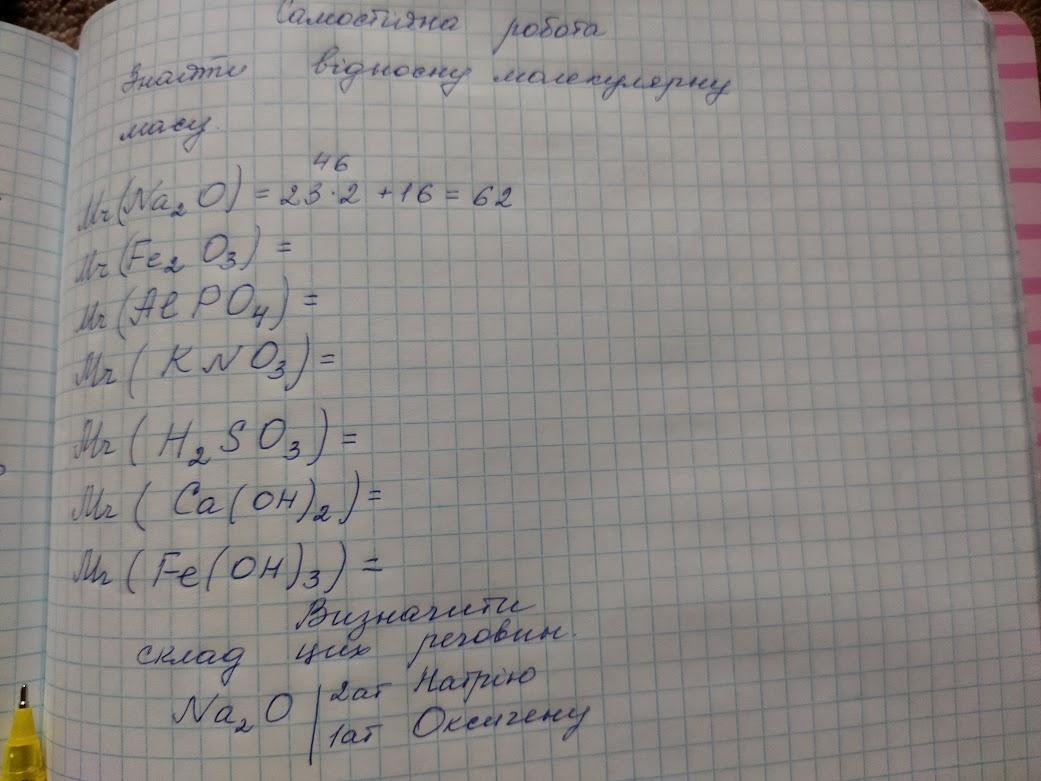 Самостійна робота
Знайти відносну молекулярну
масу.
46
Mr(Na₂O) = 23·2 +16 = 62
Mr(Fe₂O₃) =
Mr(AlPO₄) =
Mr(KNO₃) =
Mr(H₂SO₃) =
Mr(Ca(OH)₂) =
Mr(Fe(OH)₃) =
Визначити
склад цих речовин.
Na₂O | 2ат Натрію
1ат Оксигену